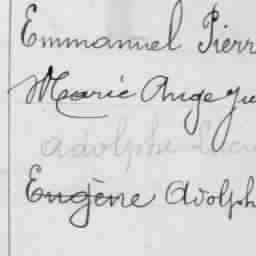 Emmanuel Pierr
Marie Ange Ju
Adolphe Lucu
Eugène Adolph